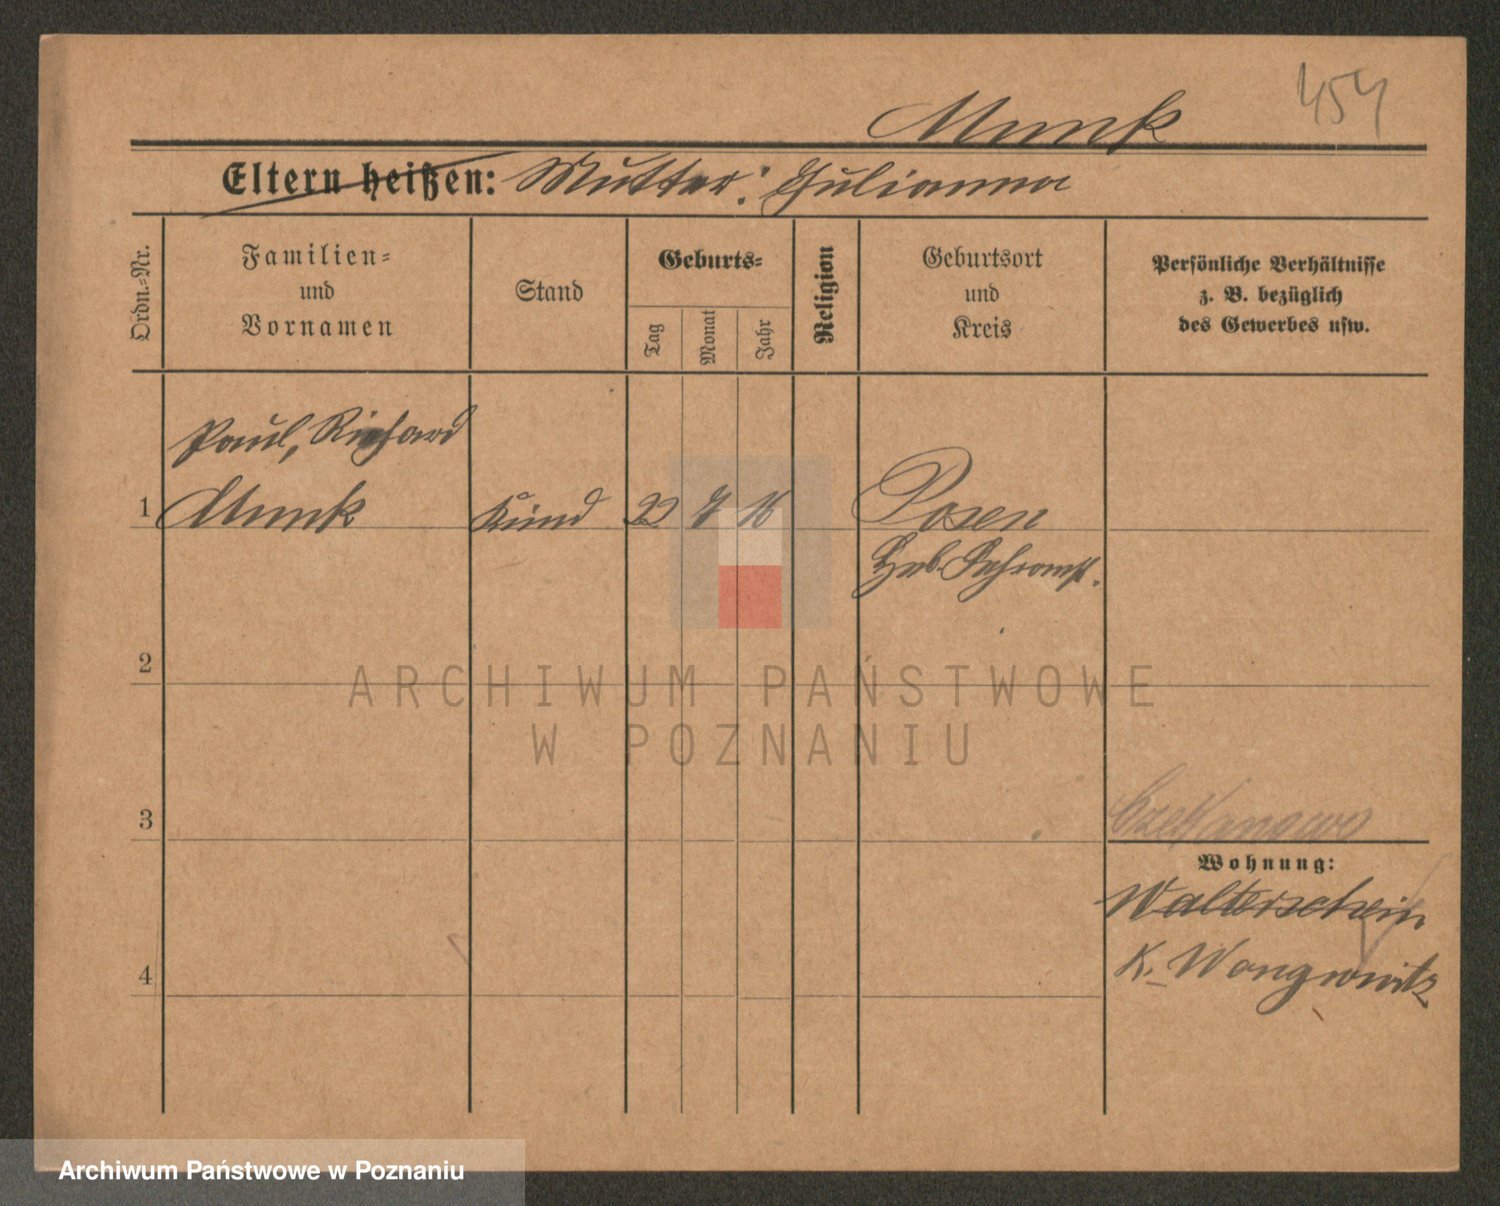 454
Munk
Eltern heißen: Mutter: Julianna
Ordn.-Nr.
Familien-
und
Vornamen
Stand
Geburts-
Tag
Monat
Jahr
Religion
Geburtsort
und
Kreis
Persönliche Verhältnisse
z. B. bezüglich
des Gewerbes usw.
Paul, Richard
1 Munk Kind 22 7 16 Posen
Heb. Lehranst.
2
ARCHIWUM PAŃSTWOWE
W POZNANIU
3
Wohnung:
Walterschein
4 K. Wongrowitz
Archiwum Państwowe w Poznaniu